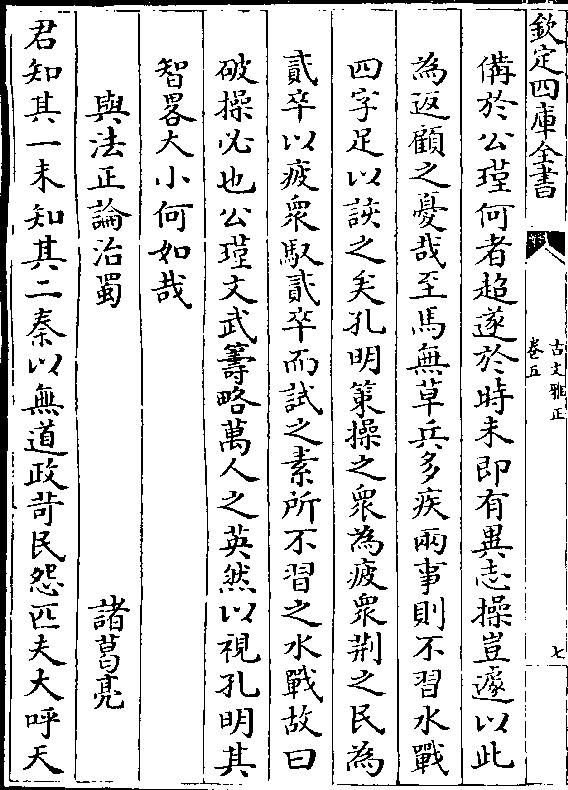 欽定四庫全書
古文雅正
卷五
七
備於公瑾何者超遂於時未即有異志操豈遽以此
為返顧之憂哉至馬無草兵多疾兩事則不習水戰
四字足以該之矣孔明策操之衆為疲衆荆之民為
貳卒以疲衆馭貳卒而試之素所不習之水戰故曰
破操必也公瑾文武籌略萬人之英然以視孔明其
智畧大小何如哉
與法正論治蜀 諸葛亮
君知其一未知其二秦以無道政苛民怨匹夫大呼天